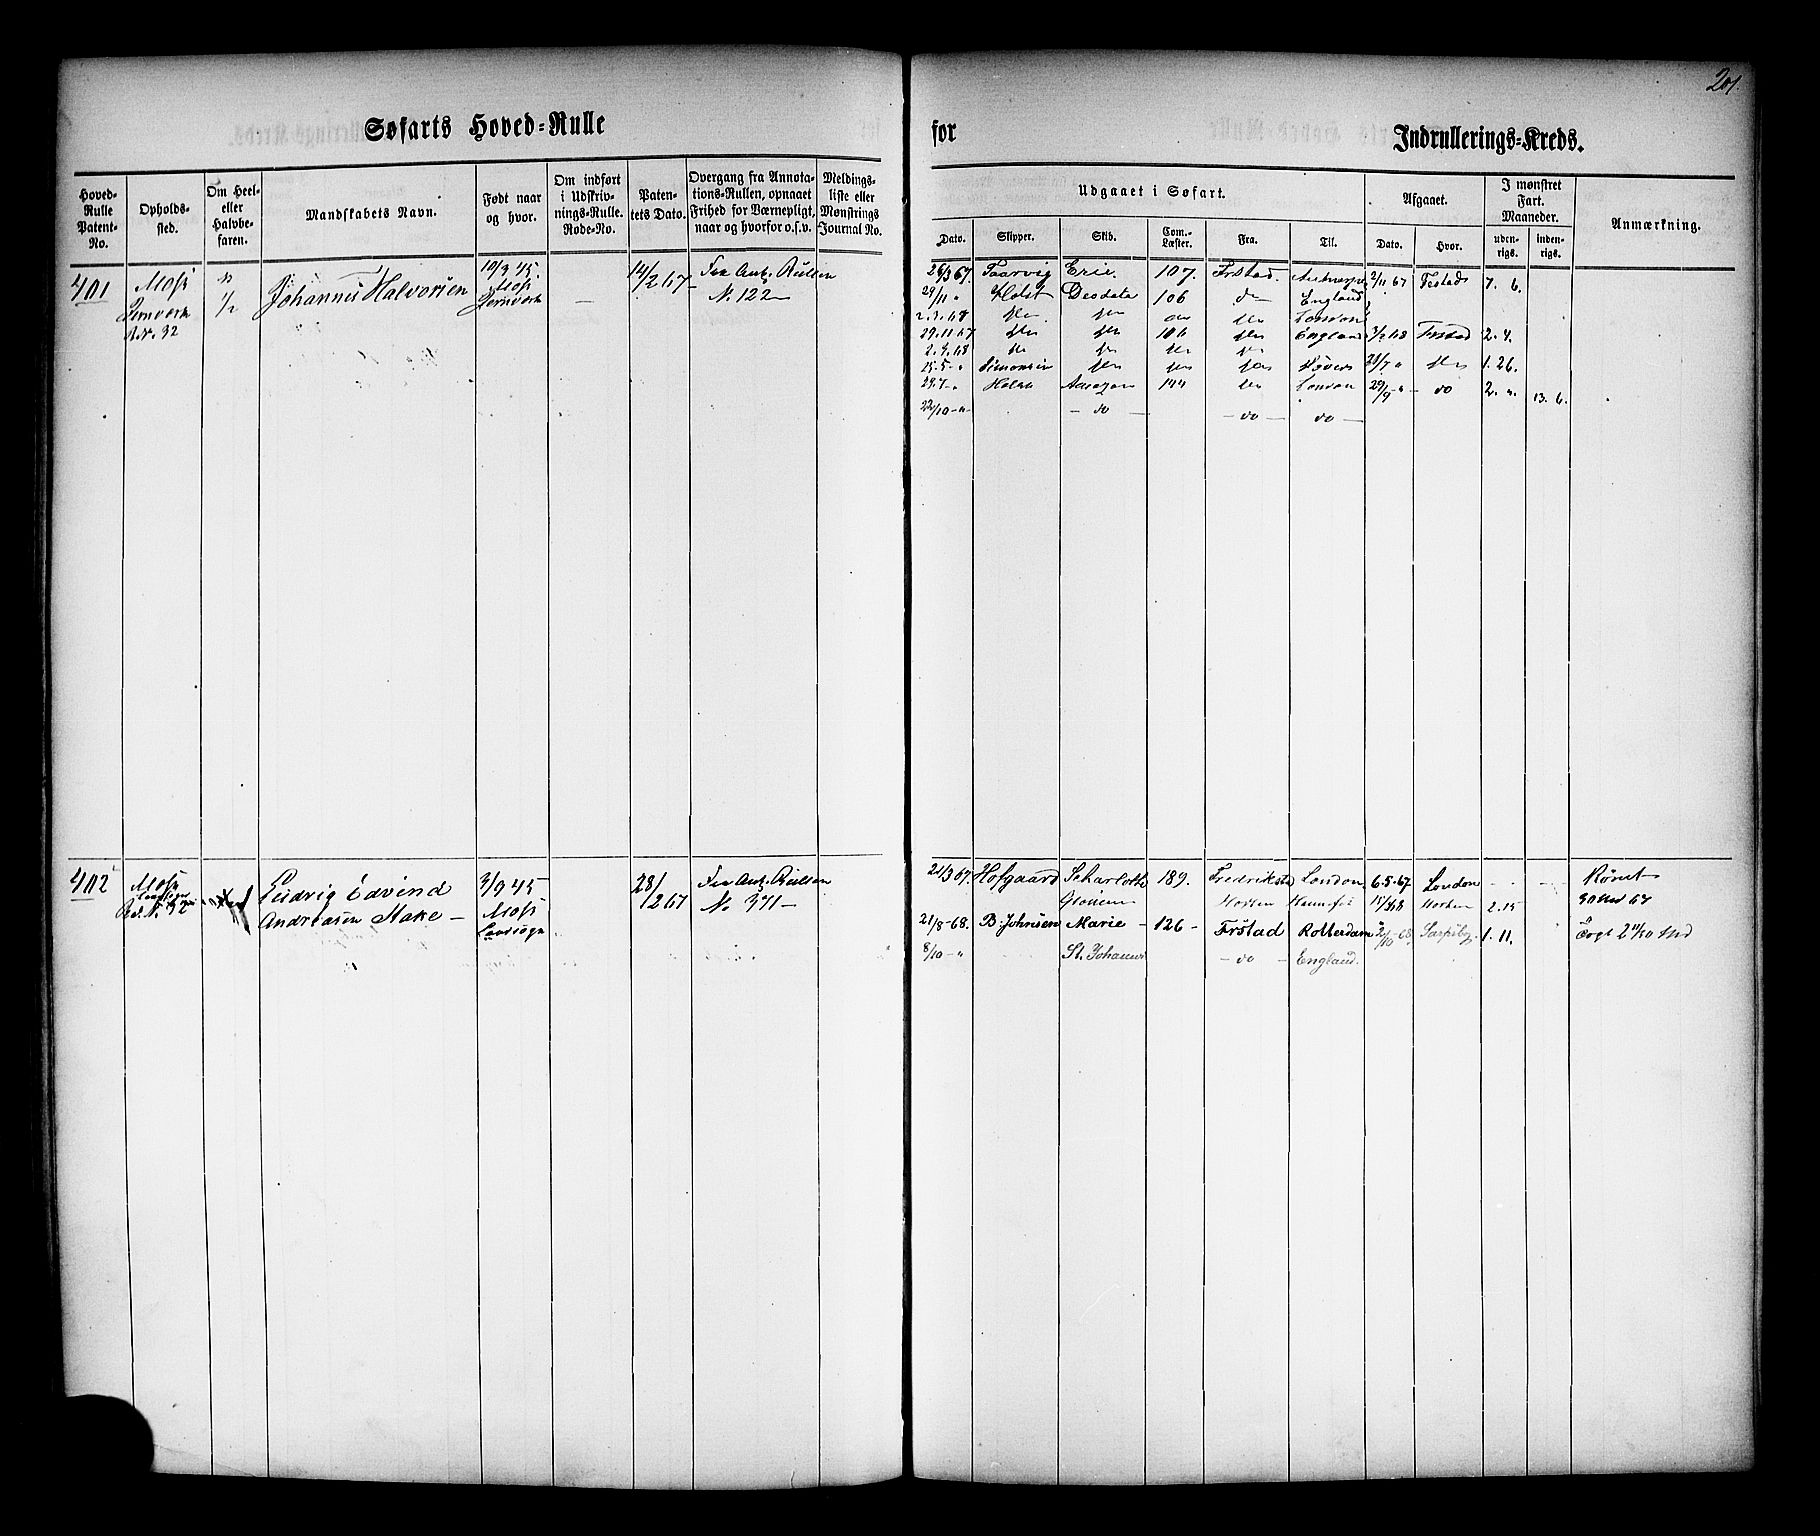 201.
Søfarts Hoved-Rulle
for
Indrullerings-Kreds.
Hoved-Rulle Patent-No.
Opholds-sted.
Om Heel- eller Halvbe-faren.
Mandskabets Navn.
Født naar og hvor.
Om indført i Udskriv-nings-Rulle. Rode-No.
Paten-tets Dato.
Overgang fra Annota-tions-Rullen, opnaaet Frihed for Værnepligt, naar og hvorfor o.s.v.
Meldings-liste eller Mønstrings Journal No.
Udgaaet i Søfart.
Afgaaet.
I mønstret Fart. Maaneder.
Anmærkning.
Dato. Skipper. Skib. Com.-Læster. Fra. Til. Dato. Hvor. uden-rigs. inden-rigs.
401 Moss Jernverk 32 1/2 Johannes Halvorsen 10/9 45. Moss Jernverk — 14/2 67 Fra Ant. Rullen N. 122 —
26/3 67 Taarvig Erie. 107. Frstad. 2/11 67 Frstad 7. 6.
29/11 " Holst Deodata 106 do England
2.3.68 do do do do London
29.11.67 do do 106 do England 3/2 68 Frstad 2. 4.
2.3.68 do do do do
25.5 " Simonsen do do do 21/7 " do 1. 26.
29.7 " Holst 144 do London 29/9 " do 2. 13. 6.
22/10 " — do — — do — — do —
402 Moss Landsogn 32 Ludvig Edvind Andreasen Hake — 3/9 45 Moss Landsogn 28/2 67 Fra Ant. Rullen No 371 —
21/3 67. Hofgaard Scharlotte 189. Fredrikstad London 6.5.67 London - - - Rømt
Horten Horten 2.15
21/8 -68. B. Johnsen Marie - 126 - Frstad Rotterdam 1. 11.
8/10 - " St. Johannes — do — England.